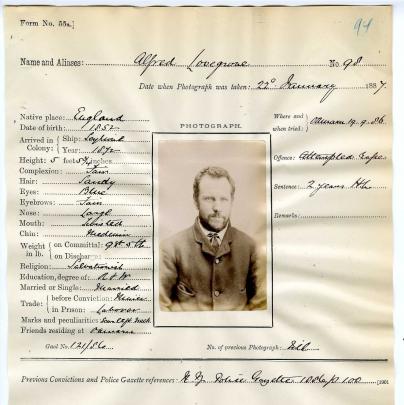 Form No. 55A.]
94
Name and Aliases: Alfred Lovegrove No. 98
Date when Photograph was taken: 22d January 1887.
PHOTOGRAPH.
Native place: England
Date of birth: 1852
Arrived in Colony: Ship:
Year: 1872
Height: 5 feet inches
Complexion: Fair
Hair: Sandy
Eyes: Blue
Eyebrows: Fair
Nose: Large
Mouth:
Chin: Medium
Weight in lb. on Committal: 9st
on Discharge:
Religion: Salvationist
Education, degree of: R & W
Married or Single: Married
Trade: before Conviction:
in Prison: Labourer
Marks and peculiarities: Scar left
Friends residing at
Gaol No. 121/86
Where and when tried: 9.86
Offence: Attempted rape
Sentence: 2 years H.L.
Remarks:
No. of previous Photograph: Nil
Previous Convictions and Police Gazette references: N.Z. Police Gazette 1886/p 100 [1901